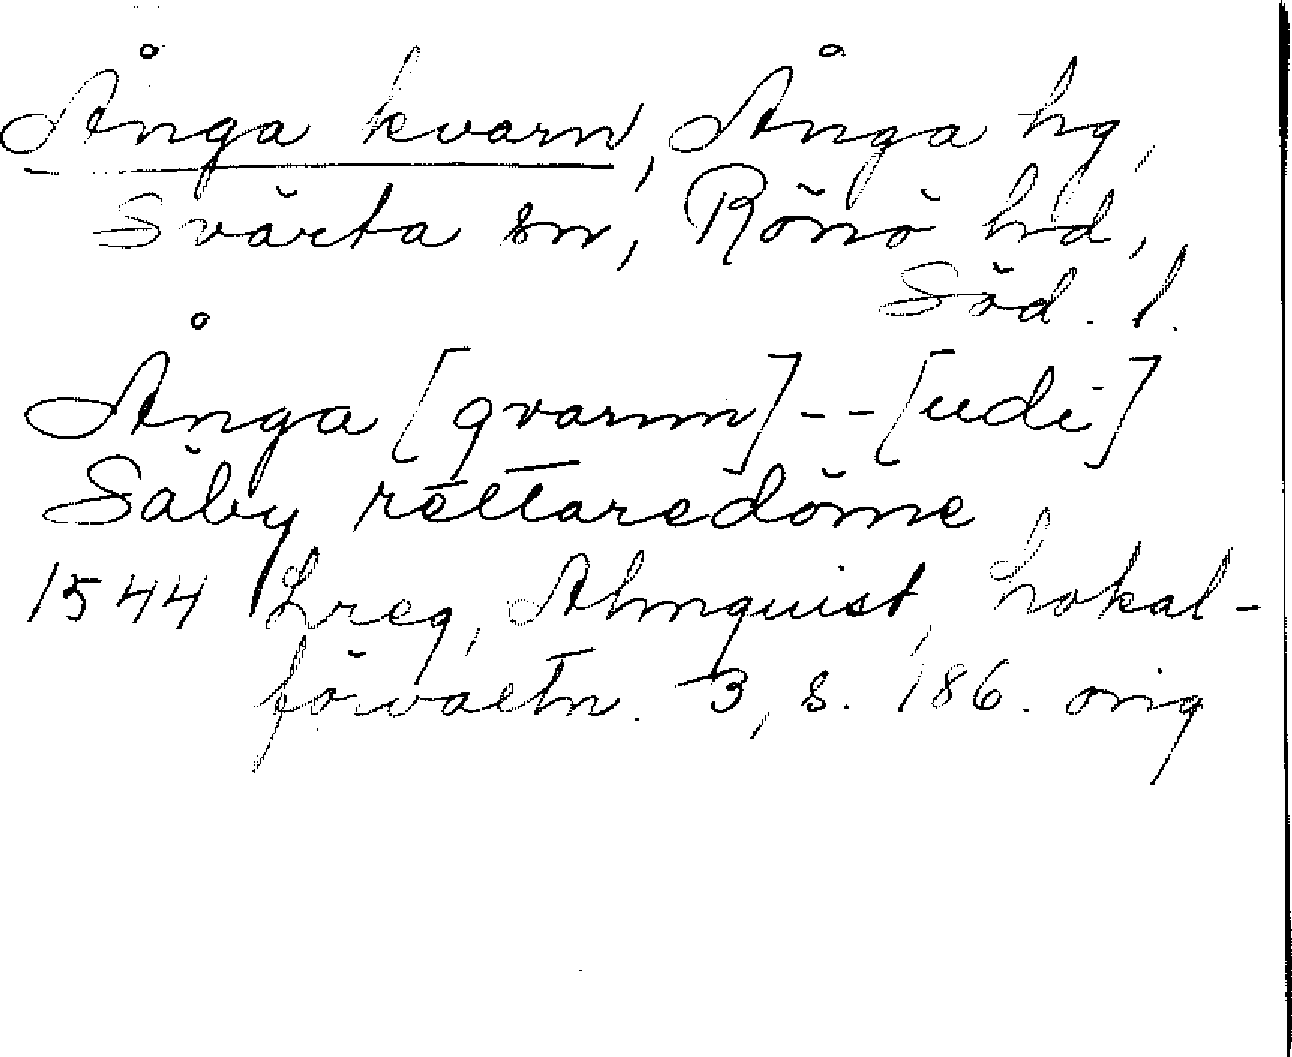 Ånga kvarn, Ånga hg,
Svärta sn, Rönö hd,
Söd. l.
Ånga [qvarnn] -- [udi]
Säby rettaredöme
1544 Lreg, Almquist, Lokal-
förvaltn. 3, s. 186. orig